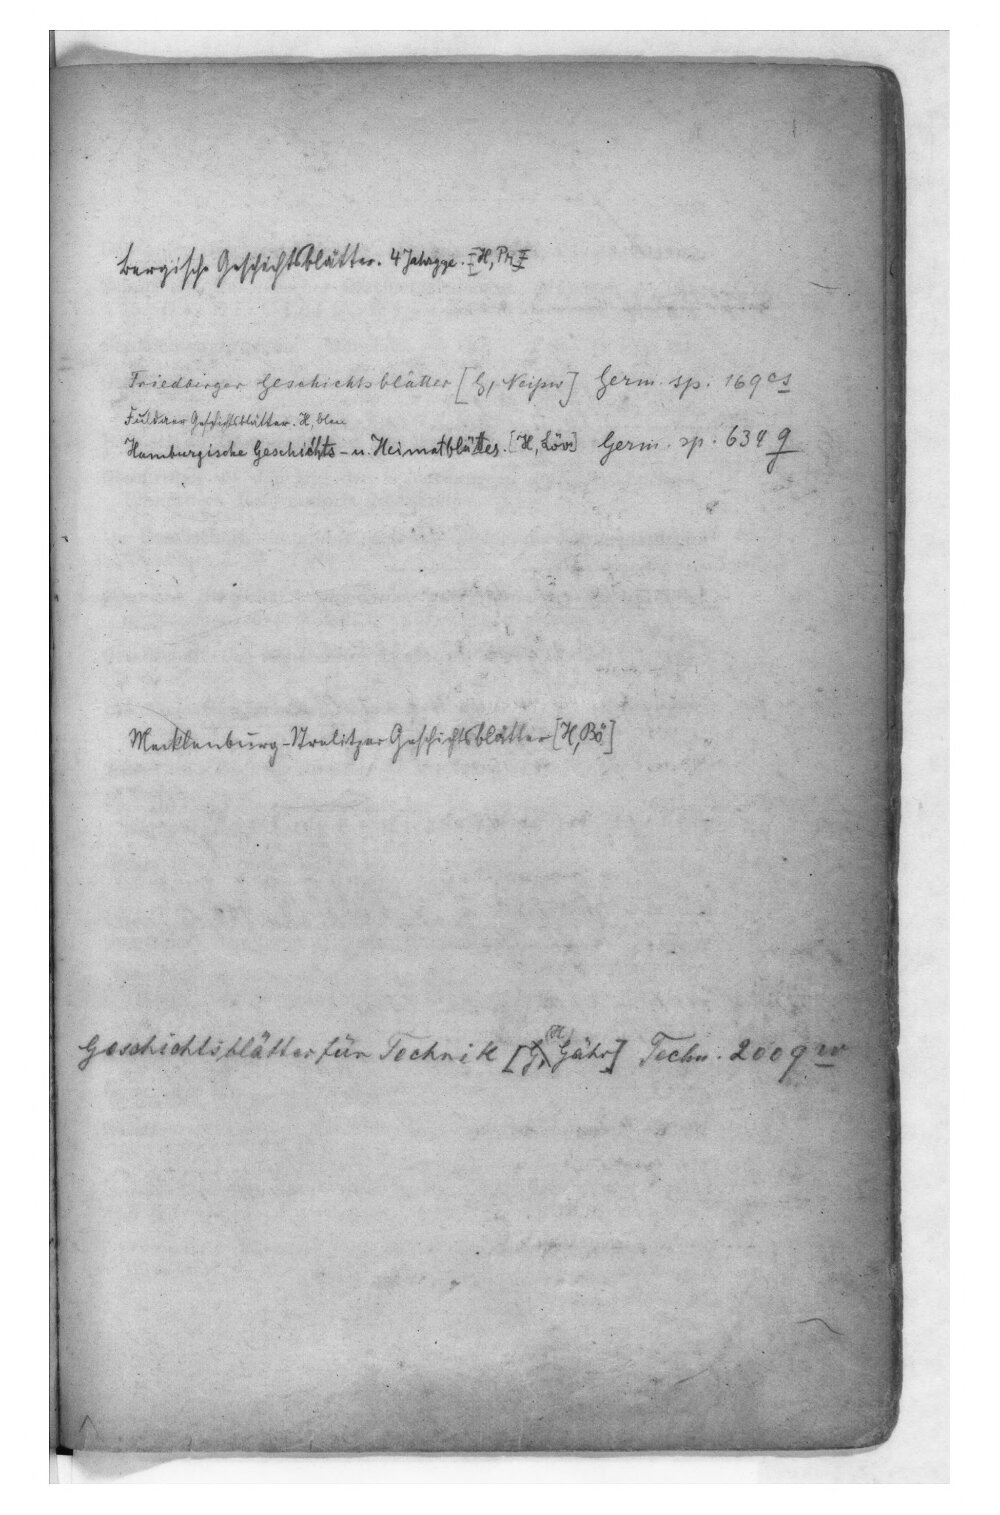 Bergische Geschichtsblätter. 4 Jahrgge. [H, Pr]
Friedberger Geschichtsblätter [G, ] Germ. sp. 169 cs
Fuldaer Geschichtsblätter. H,
Hamburgische Geschichts- u. Heimatblätter. [H, Löv] Germ. sp. 634 g
Mecklenburg-Strelitzer Geschichtsblätter [H, Bö]
(H)
Geschichtsblätter für Technik [G, Gähr] Techn. 200 q w